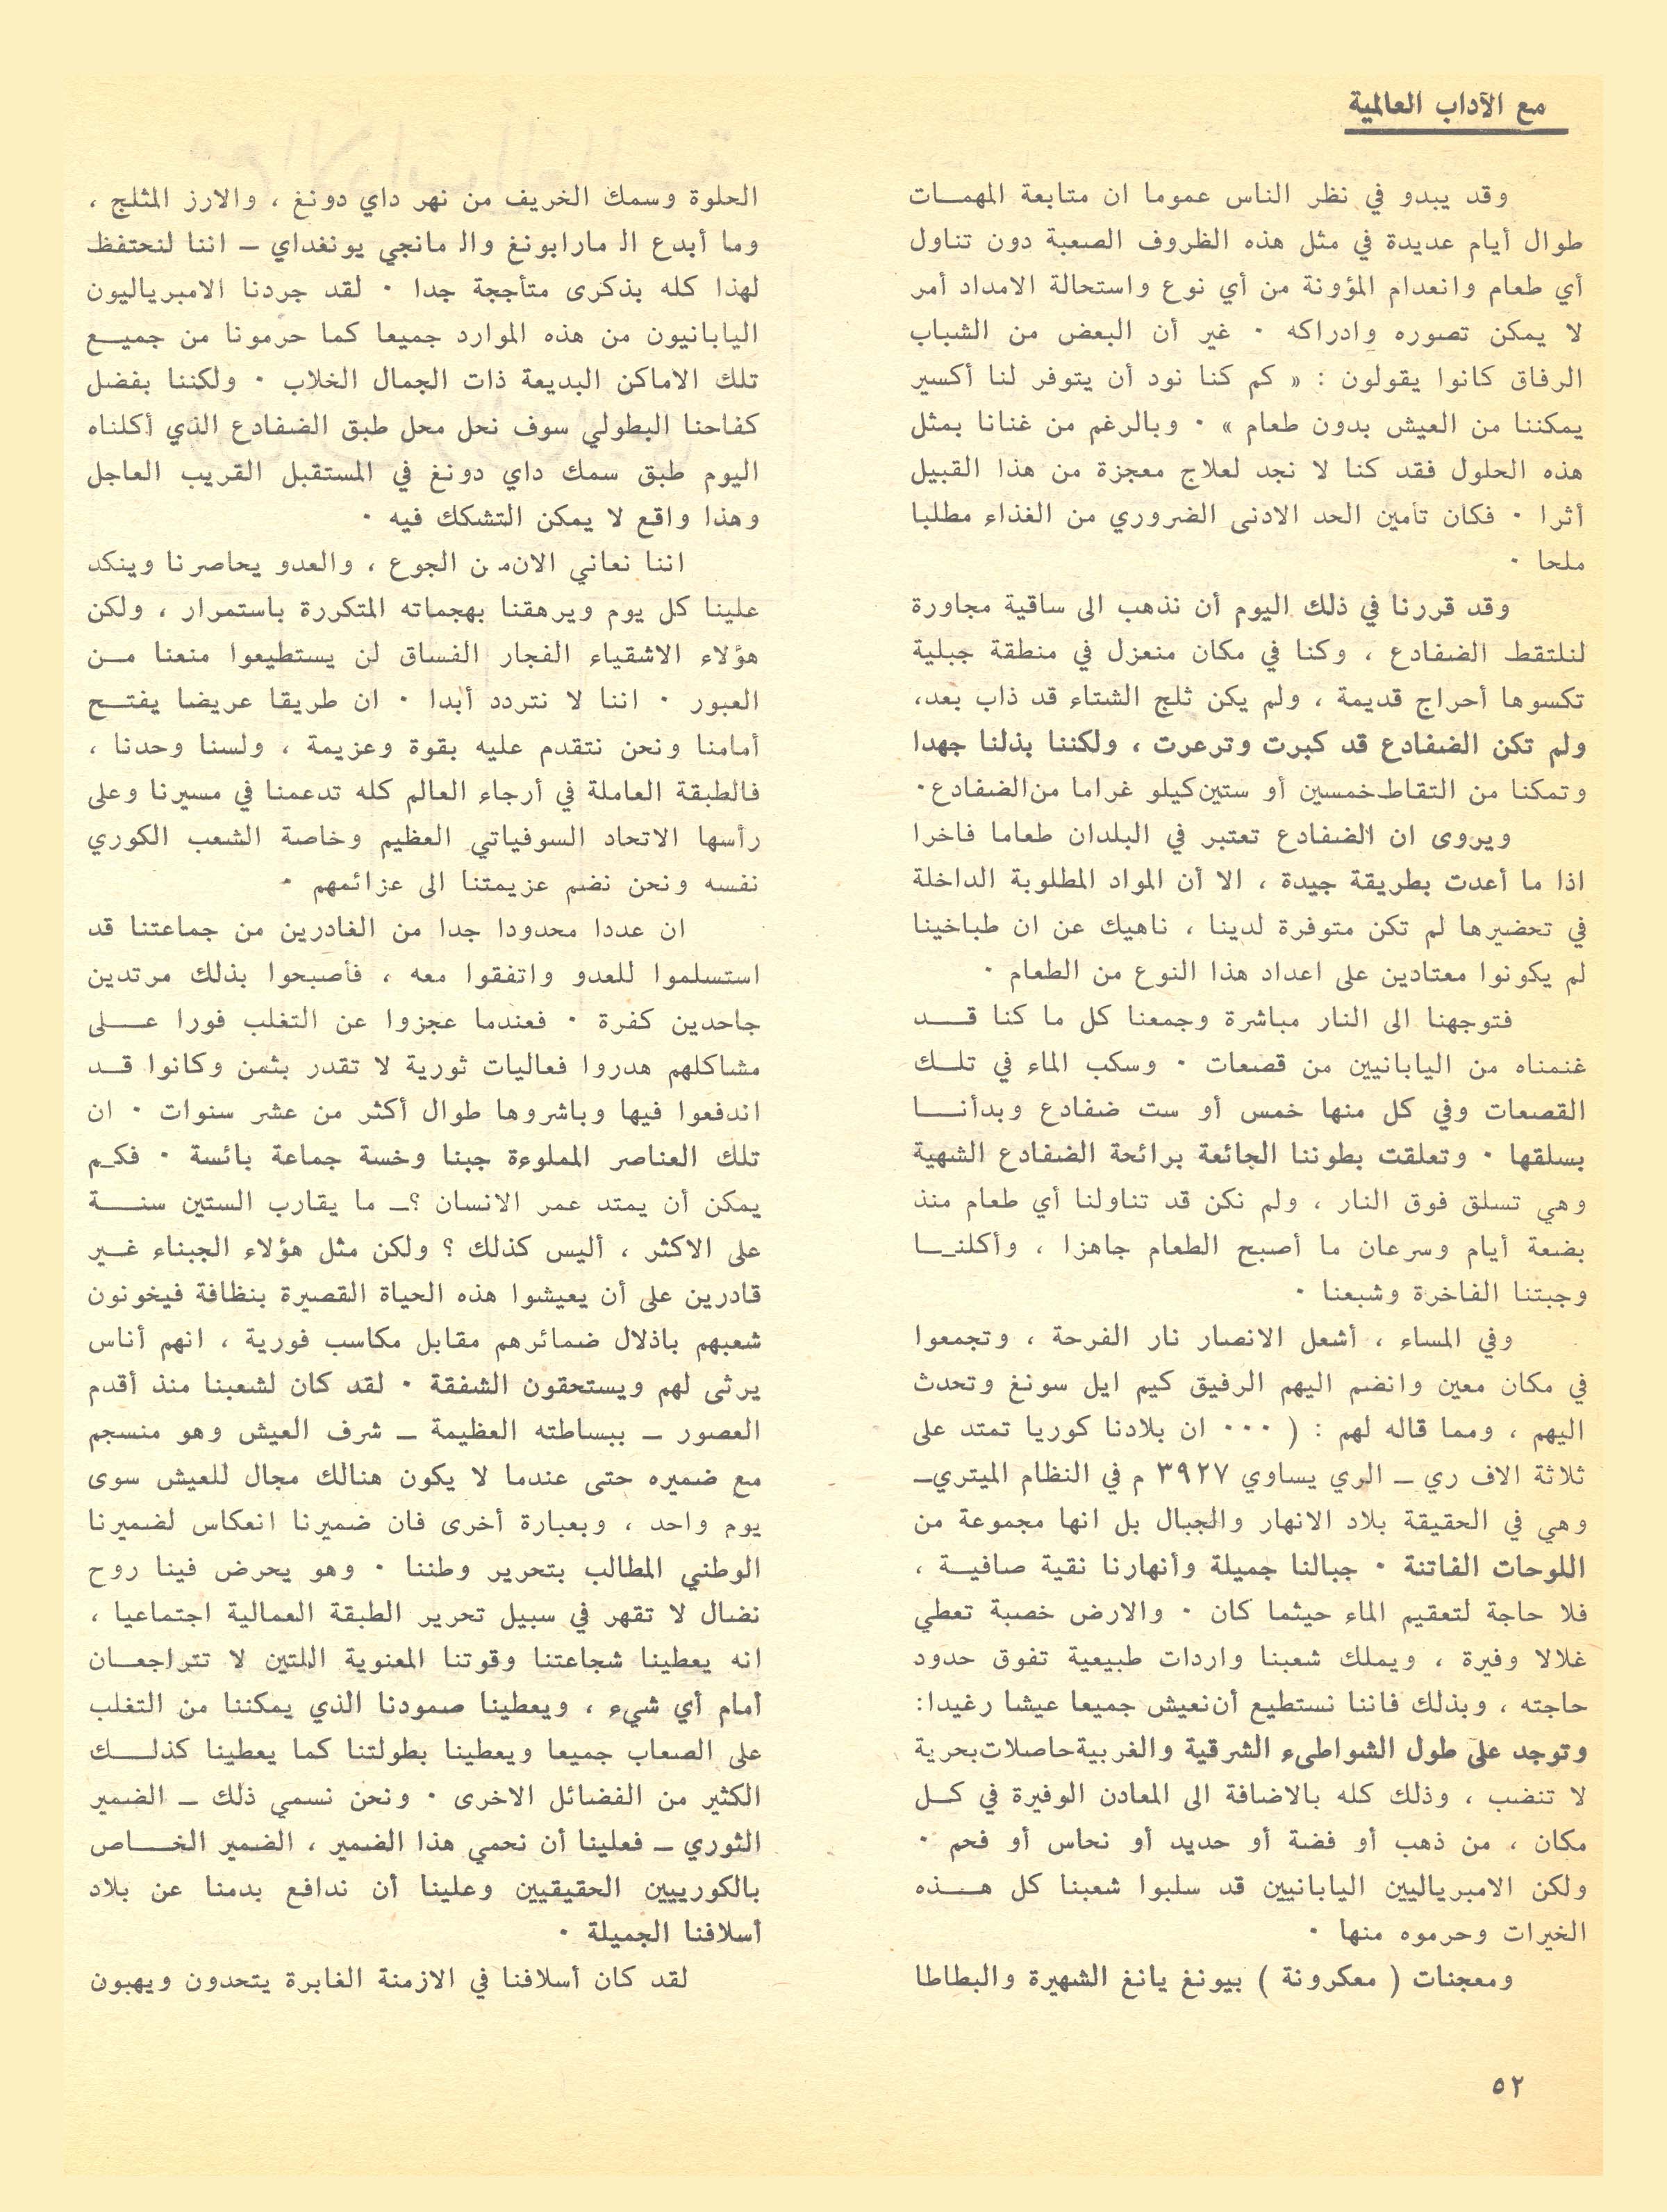 مع الآداب العالمية
وقد يبدو في نظر الناس عموما ان متابعة المهمـات
طوال أيام عديدة في مثل هذه الظروف الصعبة دون تناول
أي طعام وانعدام المؤونة من أي نوع واستحالة الامداد أمر
لا يمكن تصوره وادراكه ٠ غير أن البعض من الشباب
الرفاق كانوا يقولون : « كم كنا نود أن يتوفر لنا أكسير
يمكننا من العيش بدون طعام » ٠ وبالرغم من غنانا بمثل
هذه الحلول فقد كنا لا نجد لعلاج معجزة من هذا القبيل
أثرا ٠ فكان تأمين الحد الادنى الضروري من الغذاء مطلبا
ملحا ٠
وقد قررنا في ذلك اليوم أن نذهب الى ساقية مجاورة
لنلتقط الضفادع ، وكنا في مكان منعزل في منطقة جبلية
تكسوها أحراج قديمة ، ولم يكن ثلج الشتاء قد ذاب بعد،
ولم تكن الضفادع قد كبرت وترعرت ، ولكننا بذلنا جهدا
وتمكنا من التقاط خمسين أو ستين كيلو غراما من الضفادع ٠
ويروى ان الضفادع تعتبر في البلدان طعاما فاخرا
اذا ما أعدت بطريقة جيدة ، الا أن المواد المطلوبة الداخلة
في تحضيرها لم تكن متوفرة لدينا ، ناهيك عن ان طباخينا
لم يكونوا معتادين على اعداد هذا النوع من الطعام ٠
فتوجهنا الى النار مباشرة وجمعنا كل ما كنا قـد
غنمناه من اليابانيين من قصعات ٠ وسكب الماء في تلـك
القصعات وفي كل منها خمس أو ست ضفادع وبدأنـا
بسلقها ٠ وتعلقت بطوننا الجائعة برائحة الضفادع الشهية
وهي تسلق فوق النار ، ولم نكن قد تناولنا أي طعام منذ
بضعة أيام وسرعان ما أصبح الطعام جاهزا ، وأكلنـا
وجبتنا الفاخرة وشبعنا ٠
وفي المساء ، أشعل الانصار نار الفرحة ، وتجمعوا
في مكان معين وانضم اليهم الرفيق كيم ايل سونغ وتحدث
اليهم ، ومما قاله لهم : ( ٠٠٠ ان بلادنا كوريا تمتد على
ثلاثة الاف ري ـ الري يساوي ٣٩٢٧ م في النظام الميتري ـ
وهي في الحقيقة بلاد الانهار والجبال بل انها مجموعة من
اللوحات الفاتنة ٠ جبالنا جميلة وأنهارنا نقية صافيـة ،
فلا حاجة لتعقيم الماء حيثما كان ٠ والارض خصبة تعطي
غلالا وفيرة ، ويملك شعبنا واردات طبيعية تفوق حدود
حاجته ، وبذلك فاننا نستطيع أن نعيش جميعا عيشا رغيدا:
وتوجد على طول الشواطىء الشرقية والغربية حاصلات بحرية
لا تنضب ، وذلك كله بالاضافة الى المعادن الوفيرة في كـل
مكان ، من ذهب أو فضة أو حديد أو نحاس أو فحم ٠
ولكن الامبرياليين اليابانيين قد سلبوا شعبنا كل هـذه
الخيرات وحرموه منها ٠
ومعجنات ( معكرونة ) بيونغ يانغ الشهيرة والبطاطا
الحلوة وسمك الخريف من نهر داي دونغ ، والارز المثلج ،
وما أبدع الـ مارابونغ والـ مانجي يونغداي ـ اننا لنحتفظ
لهذا كله بذكرى متأججة جدا ٠ لقد جردنا الامبرياليون
اليابانيون من هذه الموارد جميعا كما حرمونا من جميـع
تلك الاماكن البديعة ذات الجمال الخلاب ٠ ولكننا بفضل
كفاحنا البطولي سوف نحل محل طبق الضفادع الذي أكلناه
اليوم طبق سمك داي دونغ في المستقبل القريب العاجل
وهذا واقع لا يمكن التشكك فيه ٠
اننا نعاني الان من الجوع ، والعدو يحاصرنا وينكد
علينا كل يوم ويرهقنا بهجماته المتكررة باستمرار ، ولكن
هؤلاء الاشقياء الفجار الفساق لن يستطيعوا منعنا مـن
العبور ٠ اننا لا نتردد أبدا ٠ ان طريقا عريضا يفتـح
أمامنا ونحن نتقدم عليه بقوة وعزيمة ، ولسنا وحدنا ،
فالطبقة العاملة في أرجاء العالم كله تدعمنا في مسيرنا وعلى
رأسها الاتحاد السوفياتي العظيم وخاصة الشعب الكوري
نفسه ونحن نضم عزيمتنا الى عزائمهم ٠
ان عددا محدودا جدا من الغادرين من جماعتنا قد
استسلموا للعدو واتفقوا معه ، فأصبحوا بذلك مرتدين
جاحدين كفرة ٠ فعندما عجزوا عن التغلب فورا عـلى
مشاكلهم هدروا فعاليات ثورية لا تقدر بثمن وكانوا قـد
اندفعوا فيها وباشروها طوال أكثر من عشر سنوات ٠ ان
تلك العناصر المملوءة جبنا وخسة جماعة بائسة ٠ فكـم
يمكن أن يمتد عمر الانسان ؟ـ ما يقارب الستين سنـة
على الاكثر ، أليس كذلك ؟ ولكن مثل هؤلاء الجبناء غـير
قادرين على أن يعيشوا هذه الحياة القصيرة بنظافة فيخونون
شعبهم باذلال ضمائرهم مقابل مكاسب فورية ، انهم أناس
يرثى لهم ويستحقون الشفقة ٠ لقد كان لشعبنا منذ أقدم
العصور ـ ببساطته العظيمة ـ شرف العيش وهو منسجم
مع ضميره حتى عندما لا يكون هنالك مجال للعيش سوى
يوم واحد ، وبعبارة أخرى فان ضميرنا انعكاس لضميرنا
الوطني المطالب بتحرير وطننا ٠ وهو يحرض فينا روح
نضال لا تقهر في سبيل تحرير الطبقة العمالية اجتماعيا ،
انه يعطينا شجاعتنا وقوتنا المعنوية اللتين لا تتراجعـان
أمام أي شيء ، ويعطينا صمودنا الذي يمكننا من التغلب
على الصعاب جميعا ويعطينا بطولتنا كما يعطينا كذلـك
الكثير من الفضائل الاخرى ٠ ونحن نسمي ذلك ـ الضمير
الثوري ـ فعلينا أن نحمي هذا الضمير ، الضمير الخـاص
بالكوريين الحقيقيين وعلينا أن ندافع بدمنا عن بلاد
أسلافنا الجميلة ٠
لقد كان أسلافنا في الازمنة الغابرة يتحدون ويهبون
٥٢